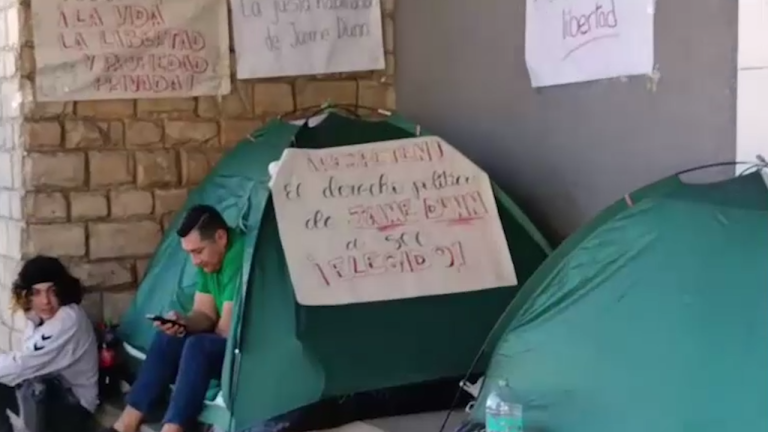 ¡LA VIDA
LA LIBERTAD
Y PROPIEDAD
PRIVADA!
La justa habilidad
de Jaime Dunn
libertad
¡RESPETEN!
El derecho político
de JAIME DUNN
a ser
¡ELEGIDO!